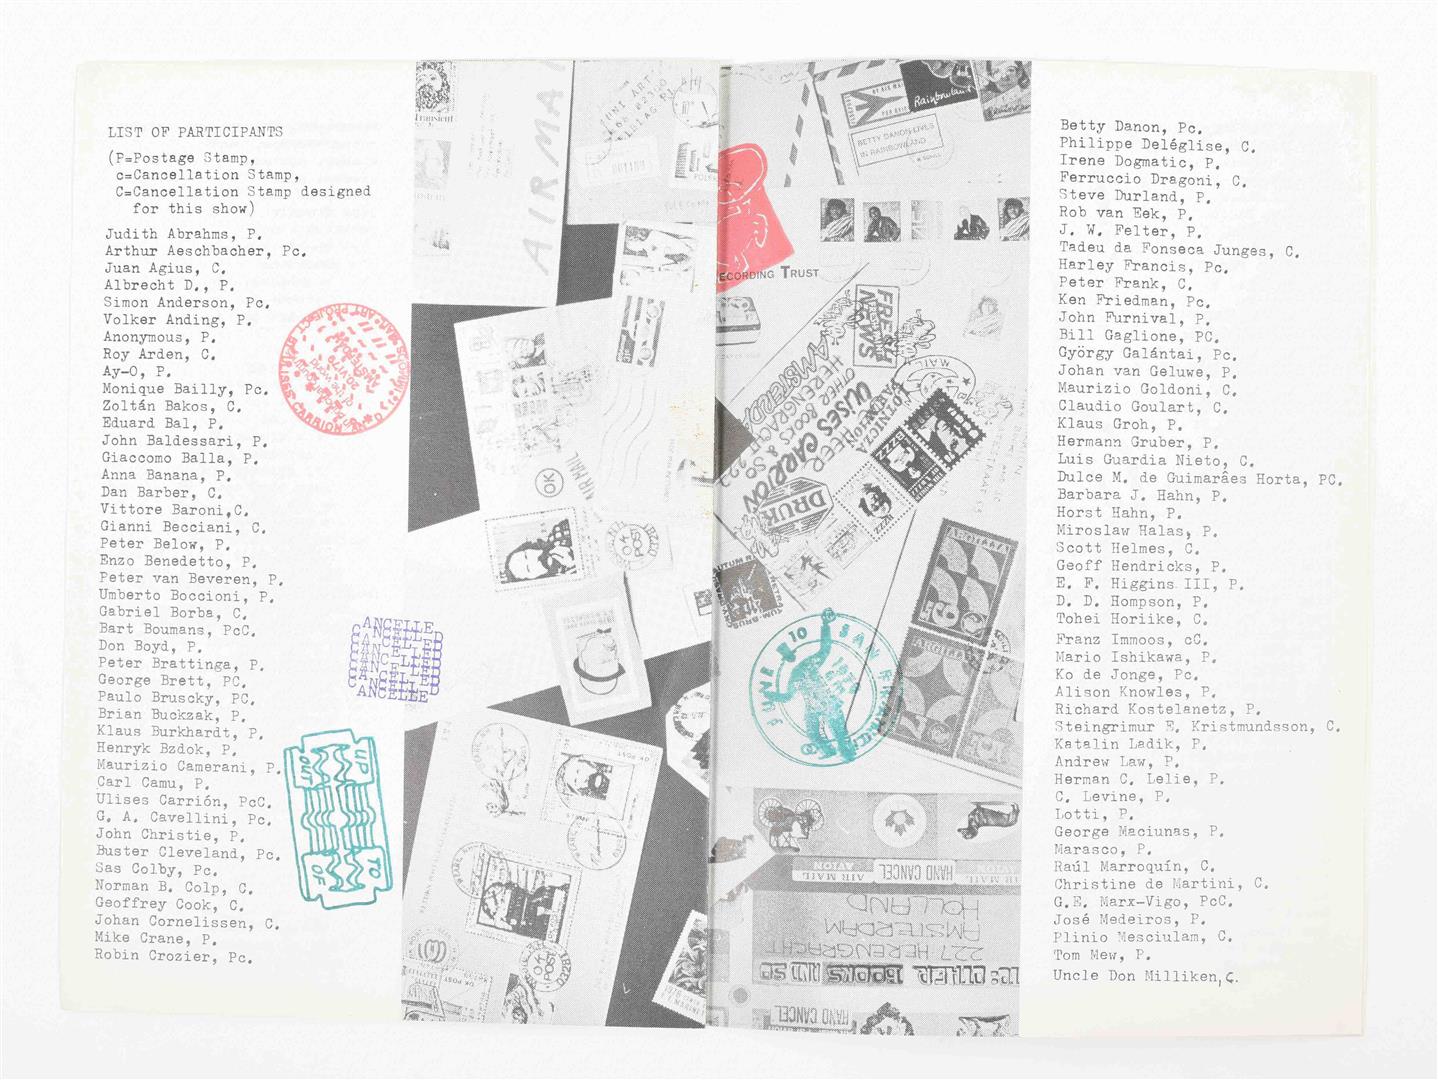 LIST OF PARTICIPANTS
(P=Postage Stamp,
c=Cancellation Stamp,
C=Cancellation Stamp designed
for this show)
Judith Abrahms, P.
Arthur Aeschbacher, Pc.
Juan Agius, C.
Albrecht D., P.
Simon Anderson, Pc.
Volker Anding, P.
Anonymous, P.
Roy Arden, C.
Ay-O, P.
Monique Bailly, Pc.
Zoltán Bakos, C.
Eduard Bal, P.
John Baldessari, P.
Giaccomo Balla, P.
Anna Banana, P.
Dan Barber, C.
Vittore Baroni,C.
Gianni Becciani, C.
Peter Below, P.
Enzo Benedetto, P.
Peter van Beveren, P.
Umberto Boccioni, P.
Gabriel Borba, C.
Bart Boumans, PcC.
Don Boyd, P.
Peter Brattinga, P.
George Brett, PC.
Paulo Bruscky, PC.
Brian Buckzak, P.
Klaus Burkhardt, P.
Henryk Bzdok, P.
Maurizio Camerani, P.
Carl Camu, P.
Ulises Carrión, PcC.
G. A. Cavellini, Pc.
John Christie, P.
Buster Cleveland, Pc.
Sas Colby, Pc.
Norman B. Colp, C.
Geoffrey Cook, C.
Johan Cornelissen, C.
Mike Crane, P.
Robin Crozier, Pc.
CANCELLED
UP
OUT
TO
OF
AIRMA
OK
OK
POST
OK POST
Rainbowland
NY
BETTY DANON LIVES
IN RAINBOWLAND
ECORDING TRUST
FRESH
NEWS
AMSTERDAM
HERENGRACHT 227
OTHER BOOKS & SO
ULISES CARRION
DRUK
MAIL
BZZZ
BZZZ
JUNE 10
SAN FRANCISCO
AIR MAIL
AVION
HAND CANCEL
AIR MAIL
HOLLAND
AMSTERDAM
227 HERENGRACHT
OTHER BOOKS AND SO
HAND CANCEL
Betty Danon, Pc.
Philippe Deléglise, C.
Irene Dogmatic, P.
Ferruccio Dragoni, C.
Steve Durland, P.
Rob van Eek, P.
J. W. Felter, P.
Tadeu da Fonseca Junges, C.
Harley Francis, Pc.
Peter Frank, C.
Ken Friedman, Pc.
John Furnival, P.
Bill Gaglione, PC.
György Galántai, Pc.
Johan van Geluwe, P.
Maurizio Goldoni, C.
Claudio Goulart, C.
Klaus Groh, P.
Hermann Gruber, P.
Luis Guardia Nieto, C.
Dulce M. de Guimarães Horta, PC.
Barbara J. Hahn, P.
Horst Hahn, P.
Miroslaw Halas, P.
Scott Helmes, C.
Geoff Hendricks, P.
E. F. Higgins III, P.
D. D. Hompson, P.
Tohei Horiike, C.
Franz Immoos, cC.
Mario Ishikawa, P.
Ko de Jonge, Pc.
Alison Knowles, P.
Richard Kostelanetz, P.
Steingrimur E. Kristmundsson, C.
Katalin Ladik, P.
Andrew Law, P.
Herman C. Lelie, P.
C. Levine, P.
Lotti, P.
George Maciunas, P.
Marasco, P.
Raúl Marroquín, C.
Christine de Martini, C.
G.E. Marx-Vigo, PcC.
José Medeiros, P.
Plinio Mesciulam, C.
Tom Mew, P.
Uncle Don Milliken,C.